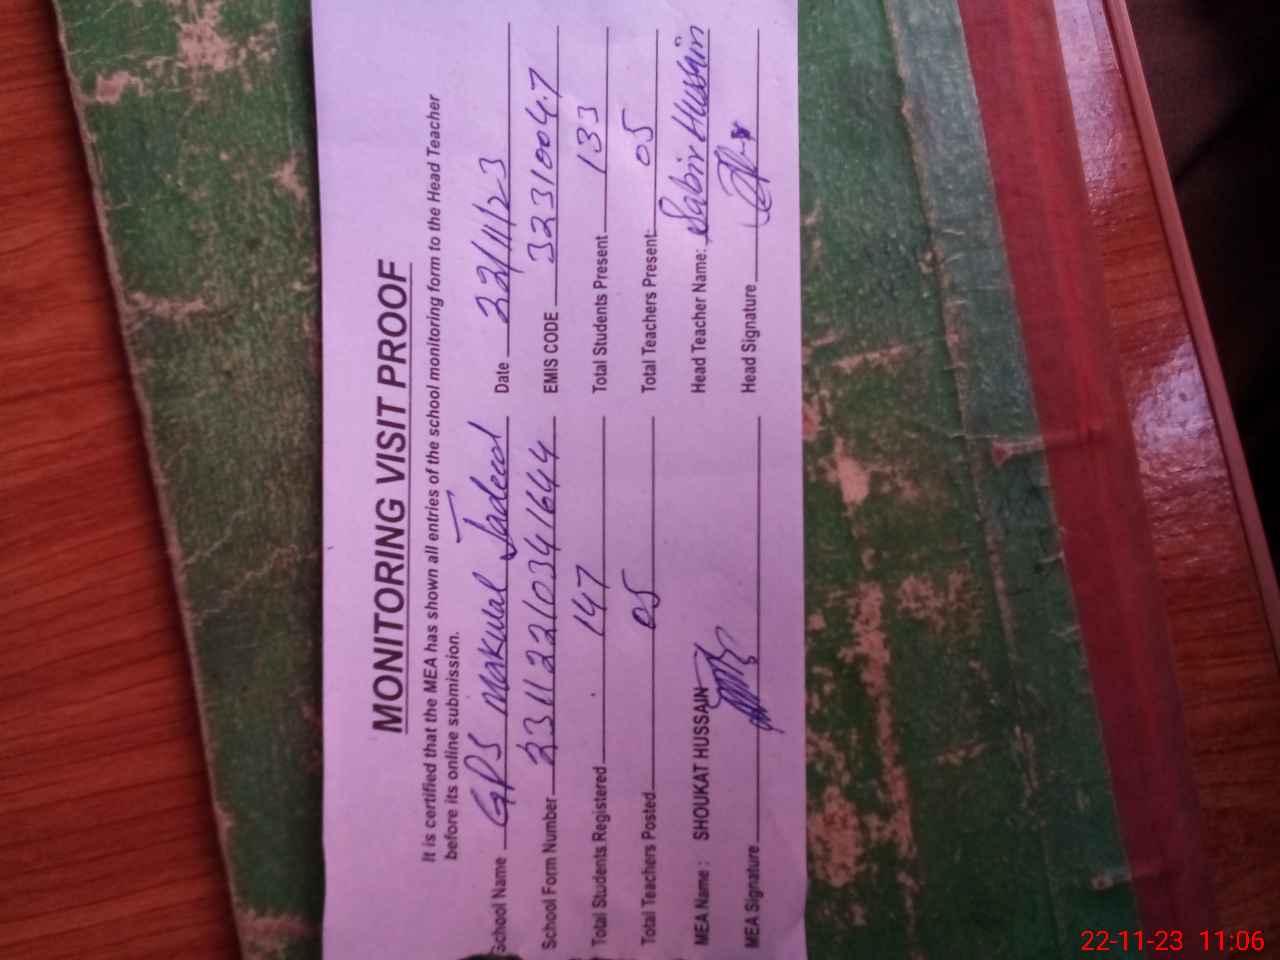 MONITORING VISIT PROOF
It is certified that the MEA has shown all entries of the school monitoring form to the Head Teacher
before its online submission.
School Name GPS Makwal Jadeed Date 22/11/23
School Form Number 23112210341644 EMIS CODE 32310047
Total Students Registered 147 Total Students Present 133
Total Teachers Posted 05 Total Teachers Present: 05
MEA Name : SHOUKAT HUSSAIN Head Teacher Name: Sabir Hussain
MEA Signature Head Signature
22-11-23 11:06